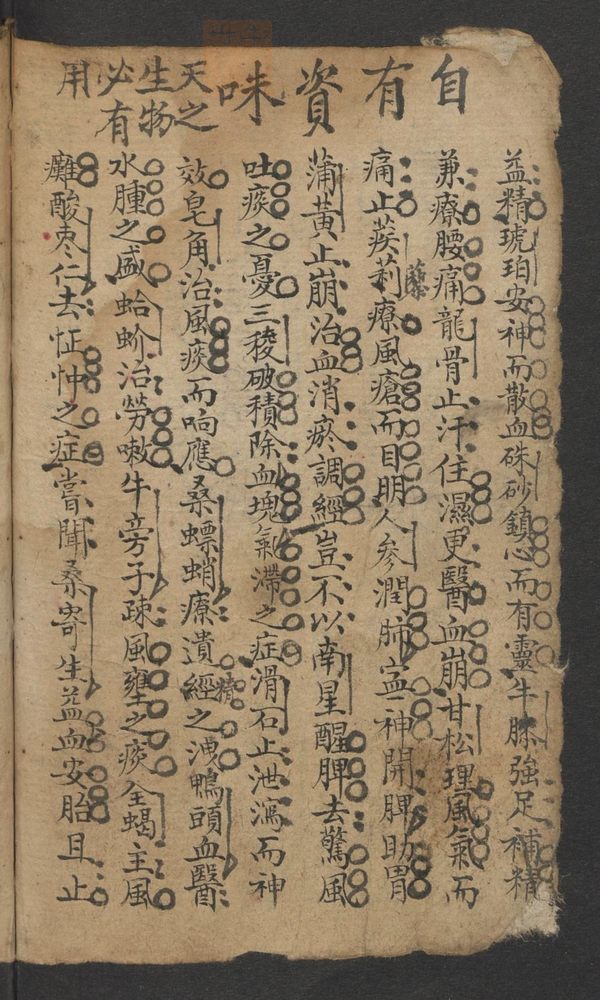 自有資味
天之
生物
必有
用
益精琥珀安神而散血硃砂鎮心而有靈牛膝強足補精
兼療腰痛龍骨止汗住濕更醫血崩甘松理風氣而
痛止蒺莉療風瘡而目明人參潤肺益神開脾助胃
藜
蒲黃止崩治血消瘀調經豈不以南星醒脾去驚風
吐痰之憂三稜破積除血塊氣滯之症滑石止泄瀉而神
效皂角治風痰而响應桑螵蛸療遺經之洩鴨頭血醫
精
水腫之盛蛤蚧治勞嗽牛旁子疎風壅之痰全蝎主風
癱酸枣仁去怔忡之症嘗聞桑寄生益血安胎且止